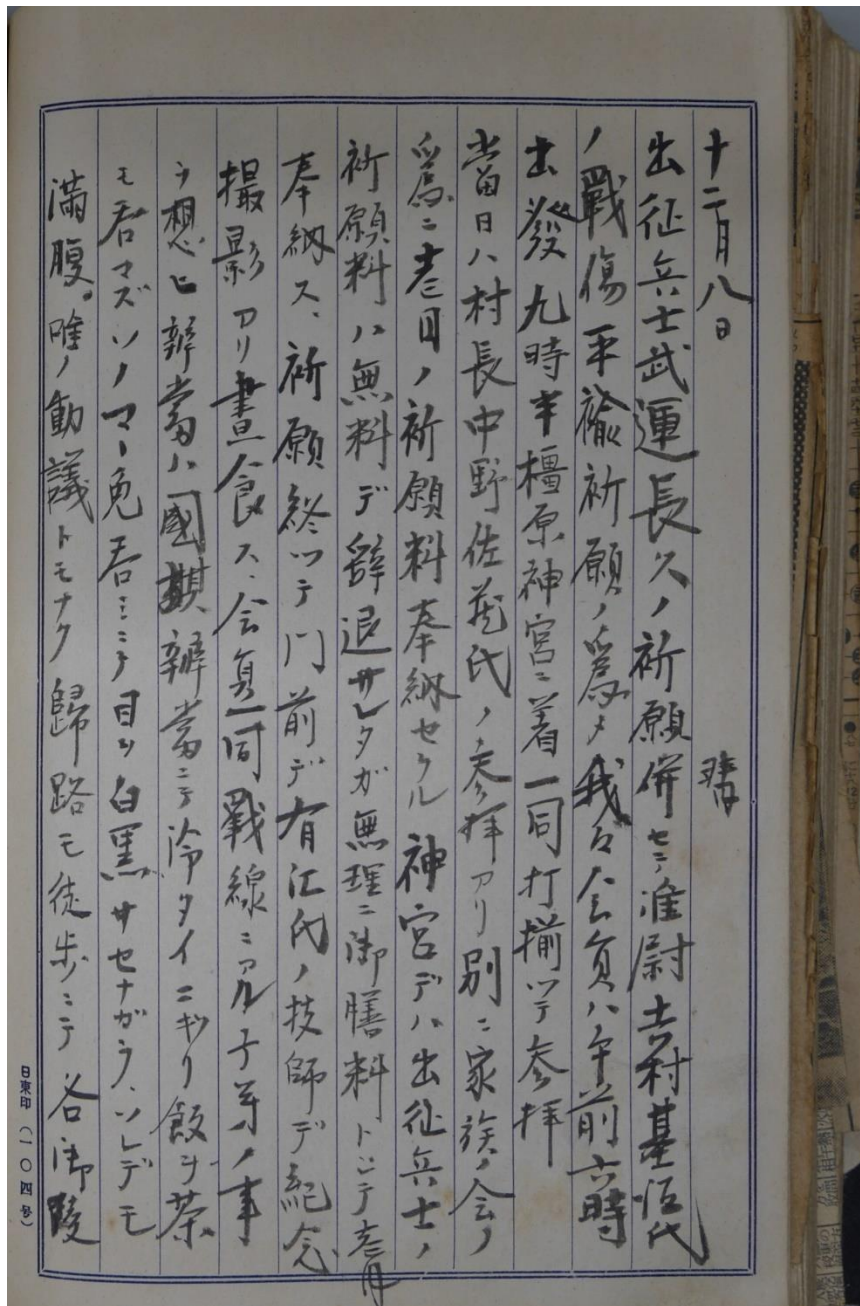 十二月八日 晴
出征兵士武運長久ノ祈願併セテ准尉吉村基恒氏
ノ戰傷平癒祈願ノ爲メ我々会員ハ午前六時
出發九時半橿原神宮ニ着一同打揃ツテ参拝
當日ハ村長中野佐藏氏ノ参拝アリ別ニ家族ノ会ノ
爲ニ壱円ノ祈願料奉納セラル神宮デハ出征兵士ノ
祈願料ハ無料デ辞退サレタガ無理ニ御膳料トシテ壱円
奉納ス、祈願終ツテ門前デ有江氏ノ技師デ紀念
撮影アリ晝食ス、会員一同戰線ニアル子弟ノ事
ヲ想ヒ辨當ハ國旗辨當ニテ冷タイニギリ飯ヲ茶
モ呑マズソノマヽ丸呑ミニテ目ヲ白黒サセナガラ、ソレデモ
満腹。唯ノ動議トモナク歸路モ徒歩ニテ各御陵
日東印(一〇四号)